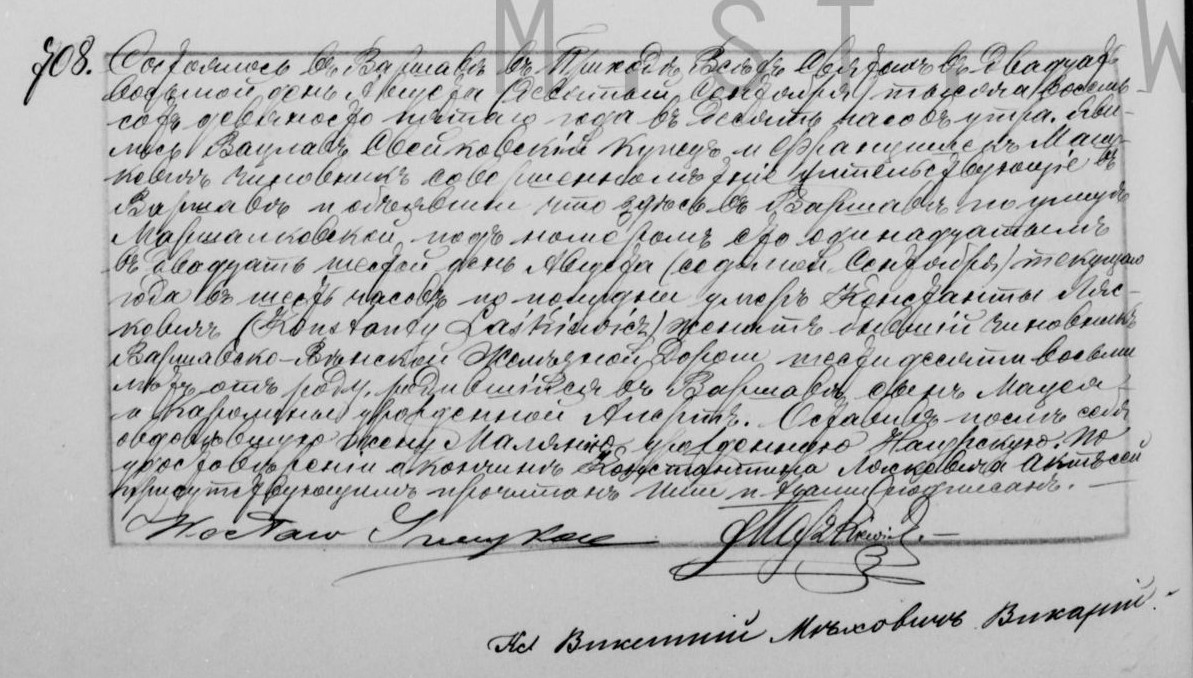 M S T W
708. Состоялось въ Варшавѣ въ Приходѣ Всѣхъ Святыхъ въ двадцать
восьмой день Августа (девятый Сентября) тысяча восемь-
сотъ девяносто пятаго года въ десять часовъ утра. Яви-
лись Вацлавъ Свейковскій купецъ и Францишекъ
чиновникъ совершеннолѣтніе жительствующіе въ
Варшавѣ и объявили что здѣсь въ Варшавѣ по улицѣ
Маршалковской подъ номеромъ сто одинадцатымъ
въ двадцать шестой день Августа (седьмой Сентября) текущаго
года въ шесть часовъ по полудни умеръ Константы Ляс-
кевичъ (Konstanty Laśkiewicz) женатъ бывшій чиновникъ
Варшавско-Вѣнской Желѣзной Дороги шестидесяти восьми
лѣтъ отъ роду, родившійся въ Варшавѣ сынъ
и Каролины урожденной. Оставивъ послѣ себя
овдовѣвшую жену Малянію урожденную. По
удостовѣреніи о кончинѣ Константина Ляскевича Актъ сей
присутствующимъ прочитанъ Ими и Нами подписанъ. —
Кс Викентій Мѣховичъ Викарій.